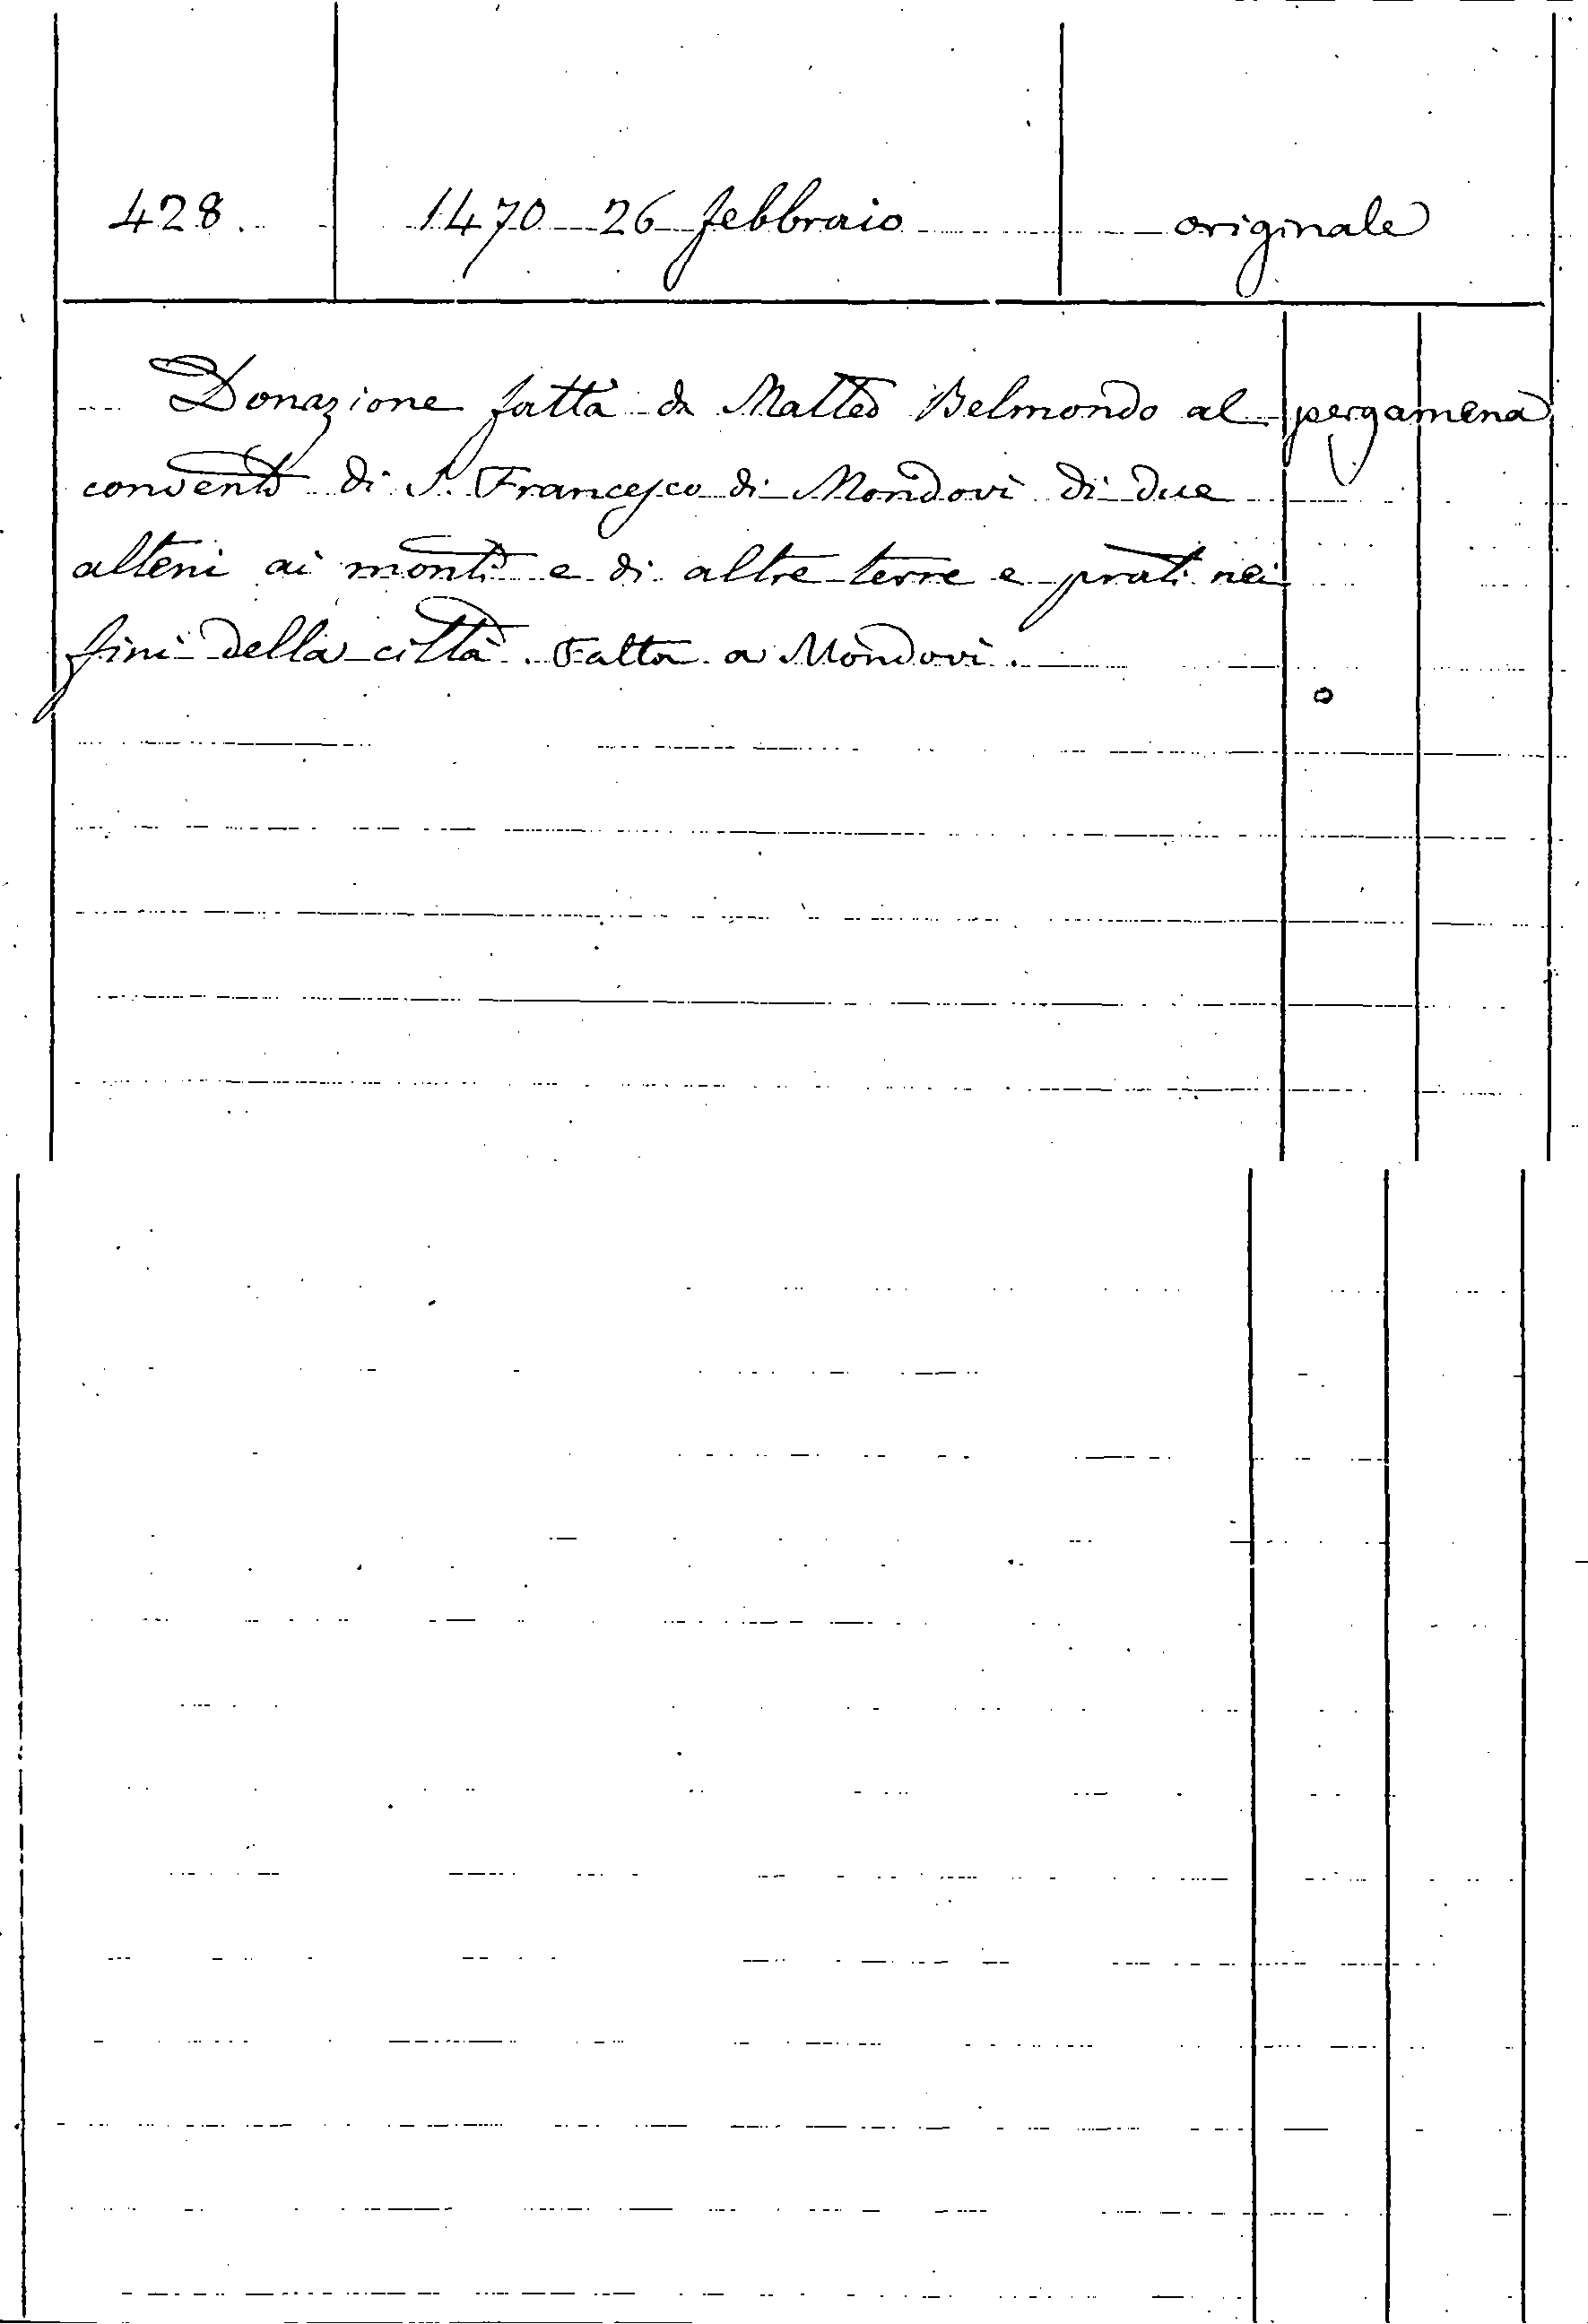 428. 1470 26 febbraio originale
Donazione fatta da Matteo Belmondo al pergamena
convento di S. Francesco di Mondovì di due
alteni ai monti e di altre terre e prati nei
fini della città. Fatta a Mondovì.